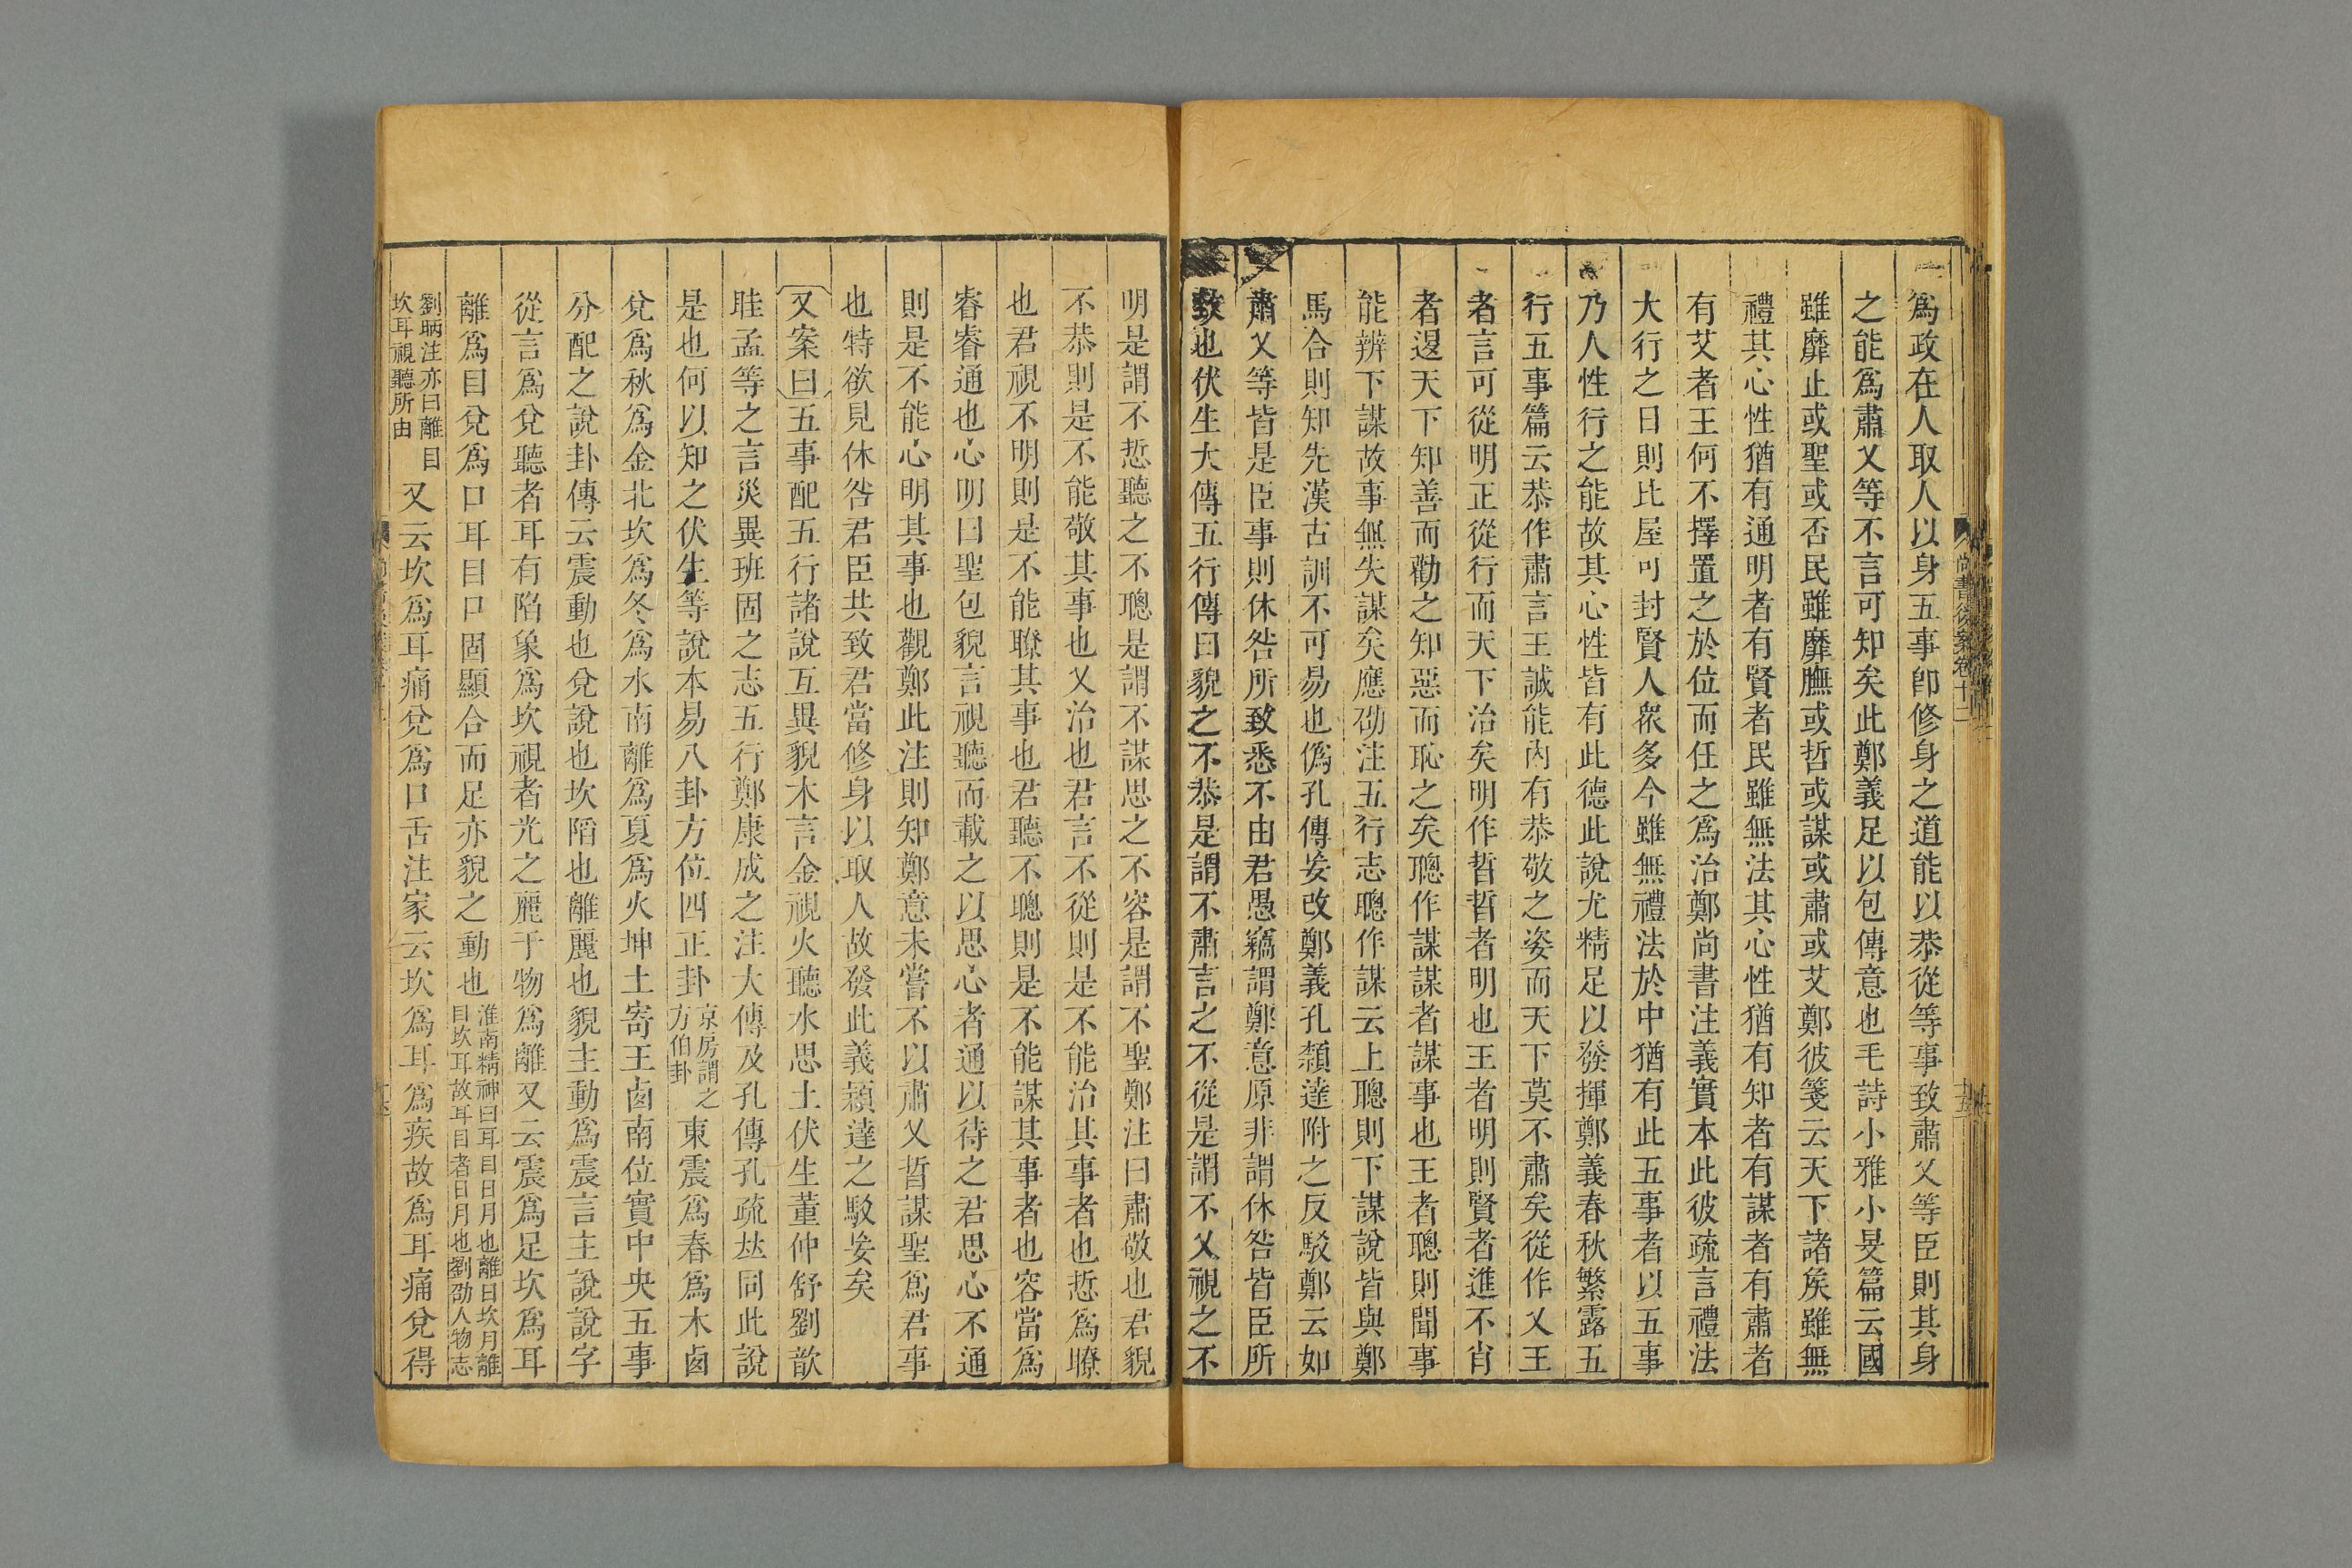 爲政在人取人以身五事卽修身之道能以恭從等事致肅乂等臣則其身
之能爲肅乂等不言可知矣此鄭義足以包傳意也毛詩小雅小旻篇云國
雖靡止或聖或否民雖靡膴或哲或謀或肅或艾鄭彼箋云天下諸矦雖無
禮其心性猶有通明者有賢者民雖無法其心性猶有知者有謀者有肅者
有艾者王何不擇置之於位而任之爲治鄭尚書注義實本此彼疏言禮法
大行之日則比屋可封賢人衆多今雖無禮法於中猶有此五事者以五事
乃人性行之能故其心性皆有此德此說尤精足以發揮鄭義春秋繁露五
行五事篇云恭作肅言王誠能內有恭敬之姿而天下莫不肅矣從作乂王
者言可從明正從行而天下治矣明作哲哲者明也王者明則賢者進不肖
者退天下知善而勸之知惡而恥之矣聰作謀謀者謀事也王者聰則聞事
能辨下謀故事無失謀矣應劭注五行志聰作謀云上聰則下謀說皆與鄭
馬合則知先漢古訓不可易也僞孔傳妄改鄭義孔穎達附之反駁鄭云如
肅乂等皆是臣事則休咎所致悉不由君愚竊謂鄭意原非謂休咎皆臣所
致也伏生大傳五行傳曰貌之不恭是謂不肅言之不從是謂不乂視之不
尚書後案卷十二
明是謂不悊聽之不聰是謂不謀思之不容是謂不聖鄭注曰肅敬也君貌
不恭則是不能敬其事也乂治也君言不從則是不能治其事者也悊爲瞭
也君視不明則是不能瞭其事也君聽不聰則是不能謀其事者也容當爲
睿睿通也心明曰聖包貌言視聽而載之以思心者通以待之君思心不通
則是不能心明其事也觀鄭此注則知鄭意未嘗不以肅乂哲謀聖爲君事
也特欲見休咎君臣共致君當修身以取人故發此義穎達之駁妄矣
又案曰五事配五行諸說互異貌木言金視火聽水思土伏生董仲舒劉歆
眭孟等之言災異班固之志五行鄭康成之注大傳及孔傳孔疏㘯同此說
是也何以知之伏生等說本易八卦方位四正卦京房謂之方伯卦東震爲春爲木鹵
兌爲秋爲金北坎爲冬爲水南離爲夏爲火坤土寄王鹵南位實中央五事
分配之說卦傳云震動也兌說也坎陷也離麗也貌主動爲震言主說說字
從言爲兌聽者耳有陷象爲坎視者光之麗于物爲離又云震爲足坎爲耳
離爲目兌爲口耳目口固顯合而足亦貌之動也淮南精神曰耳目日月也離日坎月離目坎耳故耳目者日月也劉劭人物志
劉昞注亦曰離目坎耳視聽所由又云坎爲耳痛兌爲口舌注家云坎爲耳爲疾故爲耳痛兌得